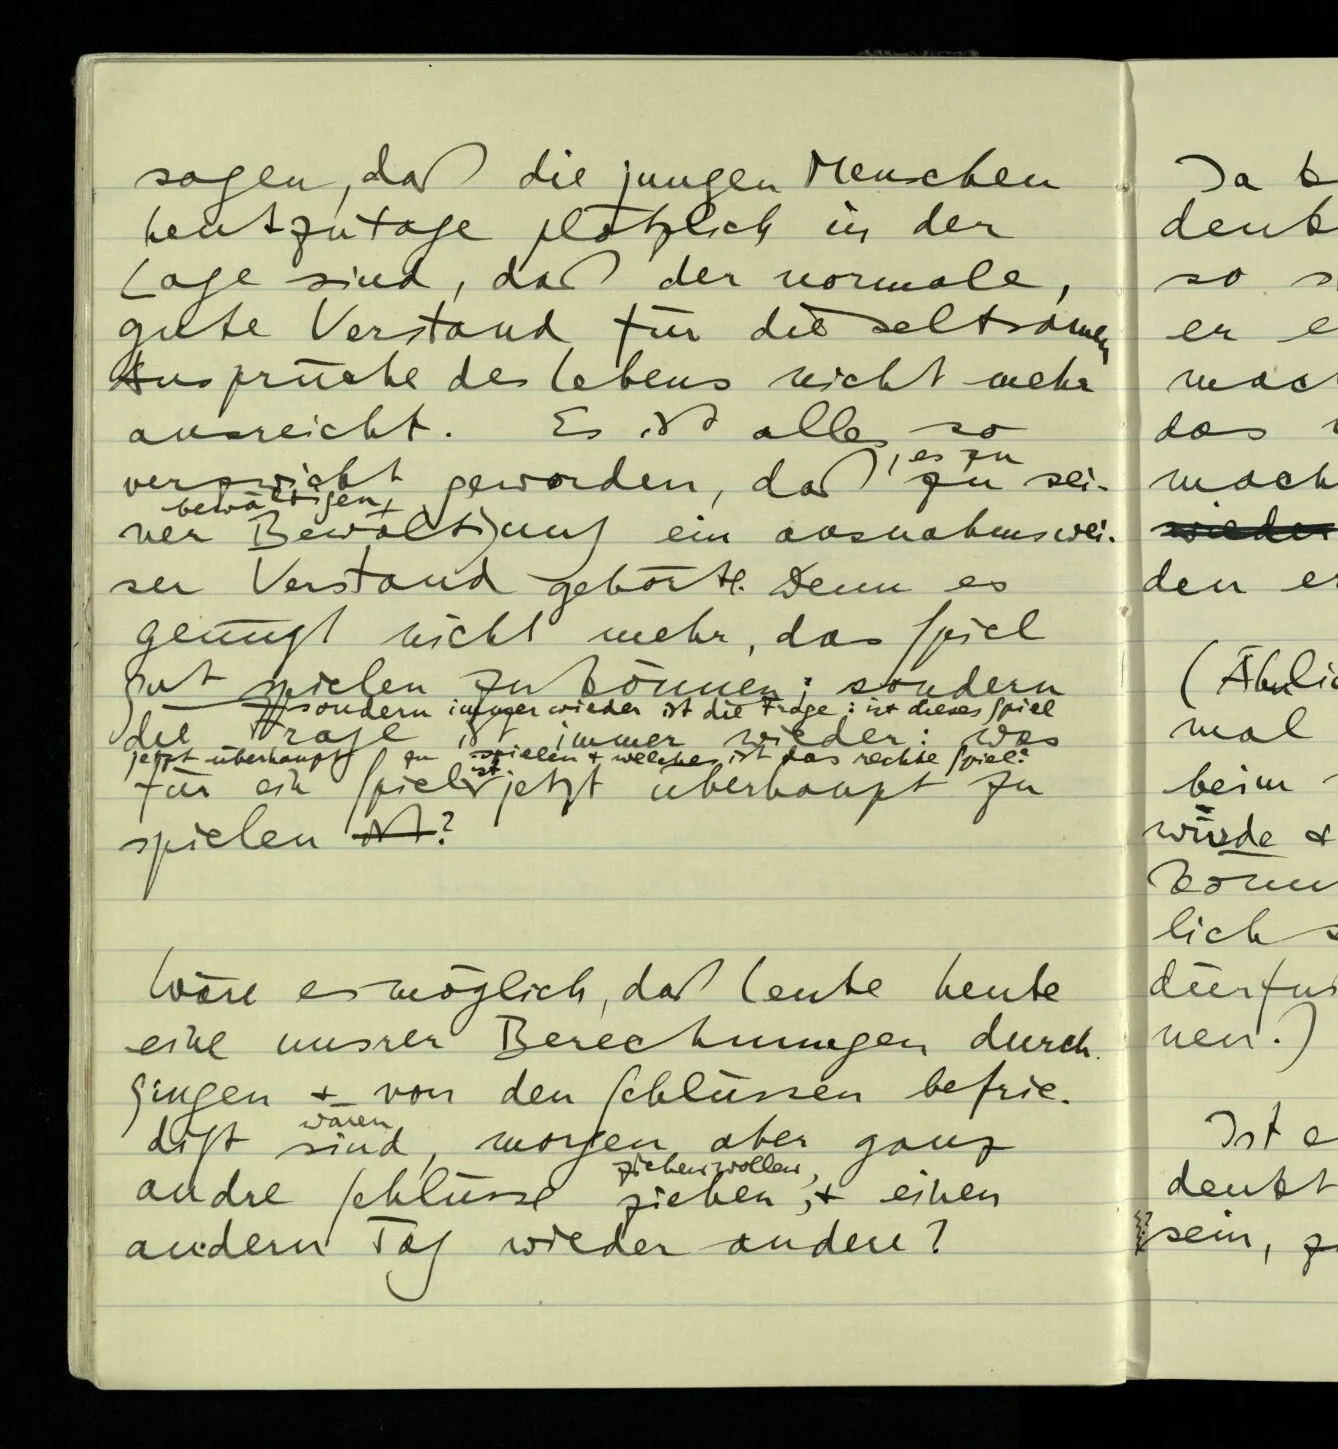 sagen, daß die jungen Menschen
heutzutage plötzlich in der
Lage sind, daß der normale,
gute Verstand für die seltsamen
Ansprüche des Lebens nicht mehr
ausreicht. Es ist alles so
, es zu
verzwickt geworden, daß zu sei-
bewältigen,
ner Bewältigung ein ausnahmswei-
ser Verstand gehörte. Denn es
genügt nicht mehr, das Spiel
gut spielen zu können; sondern
sondern immer wieder ist die Frage: ist dieses Spiel
die Frage ist immer wieder: was
jetzt überhaupt zu spielen + welches ist das rechte Spiel?
für ein Spiel ist jetzt überhaupt zu
spielen ist?
Wäre es möglich, daß Leute heute
eine unsrer Berechnungen durch-
gingen + von den Schlüssen befrie-
wären
digt sind, morgen aber ganz
ziehen wollen,
andre Schlüsse ziehen, + einen
andern Tag wieder andere?
Da
denk
so s
er e
mac
das
mach
wieder
den er
(Ähnlic
mal
beim
würde +
könn
lich s
dürfen
nen.)
Ist e
denkt
sein, z